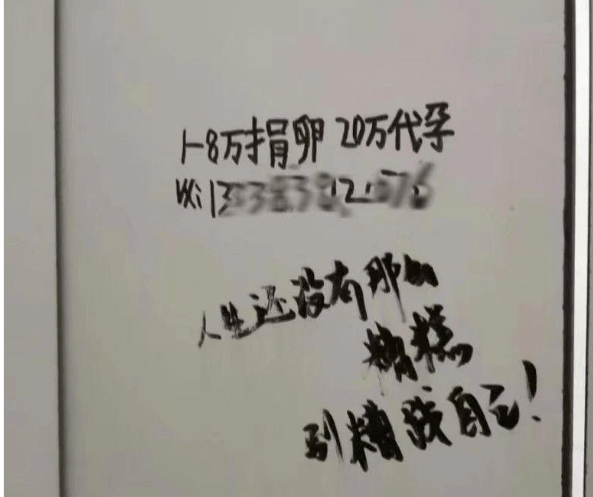 1-8万捐卵 20万代孕
VX:13
人生还没有那么
糟糕
到糟践自己!